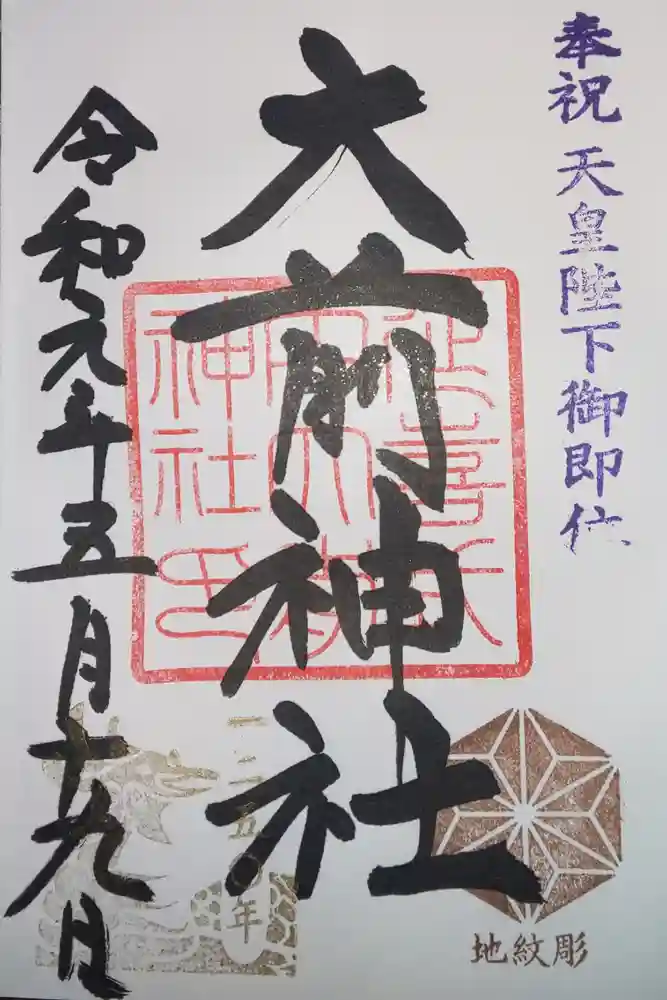 奉祝 天皇陛下御即位
大前神社
延喜式
内大前
神社印
地紋彫
一二五〇年
令和元年五月十九日